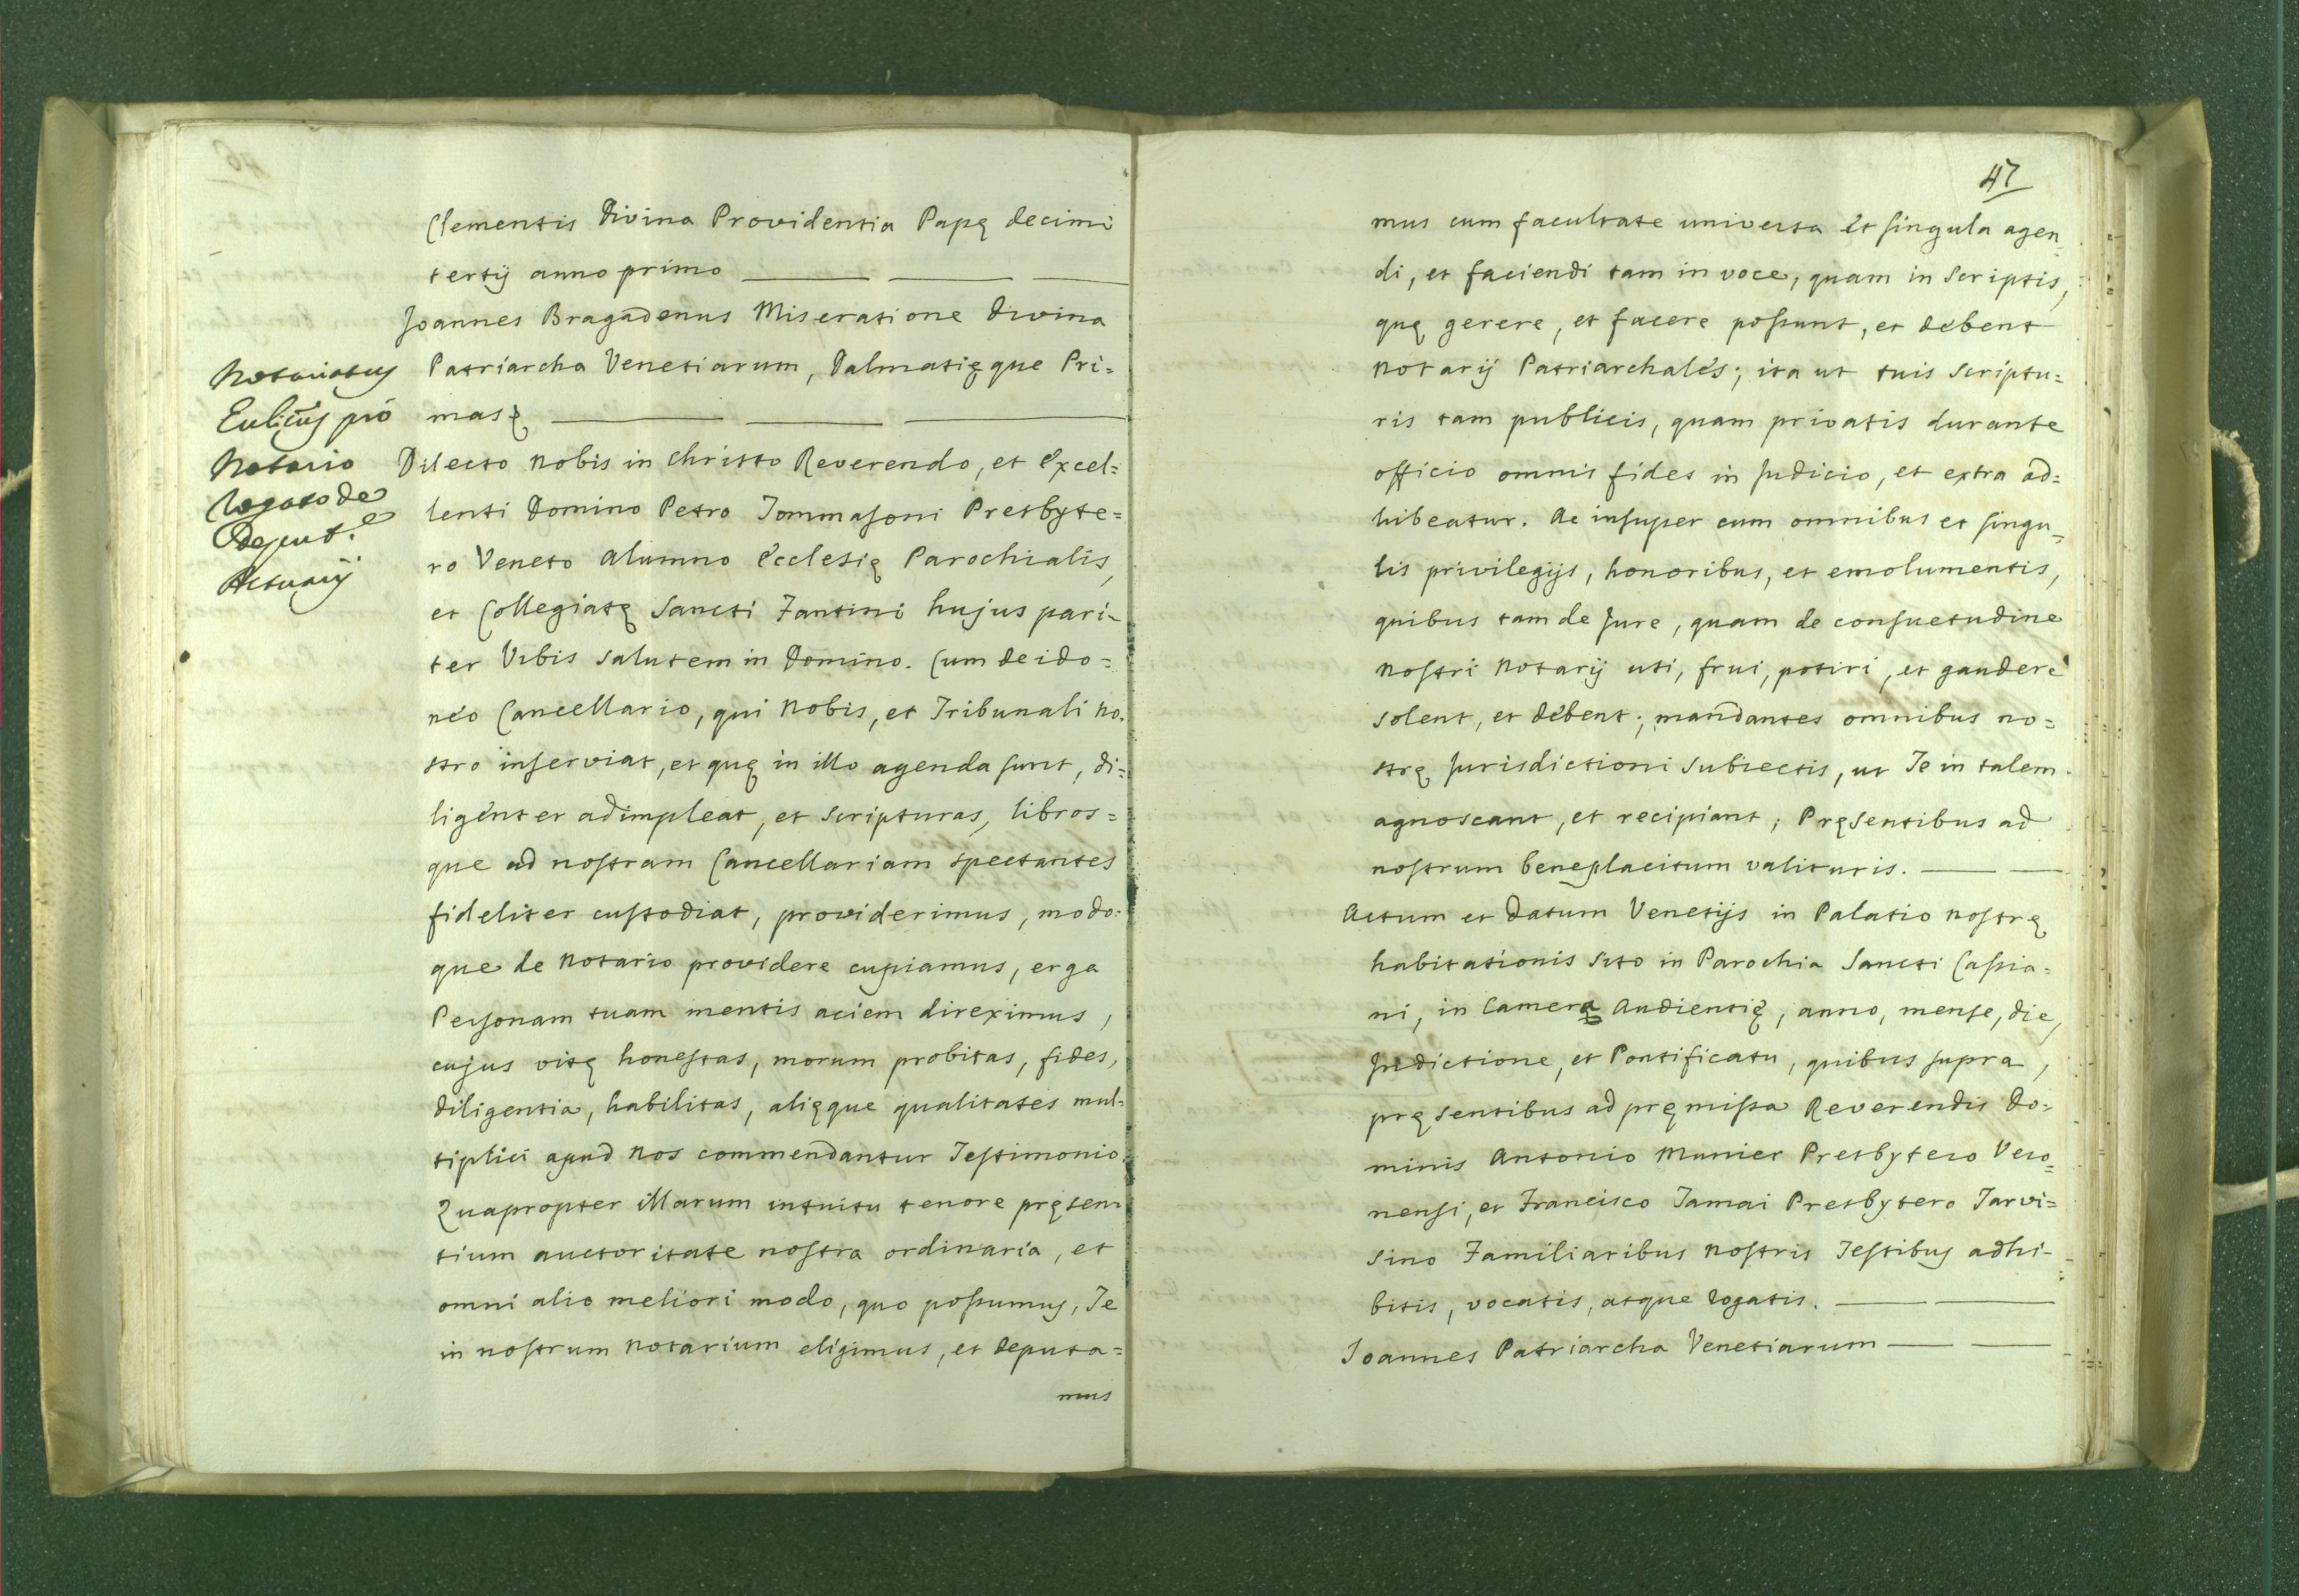 Clementis Divina Providentia Papę decimi
tertij anno primo
Joannes Bragadenus Miseratione Divina
Patriarcha Venetiarum, Dalmatięque Pri=
mas &
Dilecto nobis in Christo Reverendo, et excel=
lenti Domino Petro Tommasoni Presbyte=
ro Veneto Alumno Ecclesię Parochialis,
et Collegiatę Sancti Fantini hujus pari-
ter Urbis salutem in Domino. Cum de ido=
neo Cancellario, qui nobis, et Tribunali no.
stro inserviat, et quę in illo agenda sunt, di=
ligenter adimpleat, et scripturas, libros=
que ad nostram Cancellariam spectantes
fideliter custodiat, providerimus, modo:
que de Notario providere cupiamus, erga
Personam tuam mentis aciem direximus,
cujus vitę honestas, morum probitas, fides,
diligentia, habilitas, alięque qualitates mul=
tiplici apud nos commendantur Testimonio.
Quapropter illarum intuitu tenore pręsen
tium auctoritate nostra ordinaria, et
omni alio meliori modo, quo possumus, Te
in nostrum Notarium eligimus, et deputa=
mus
Notariatus
pro
Notario
Rogato de
Deput.e
Actuarij
47
mus cum facultate universa et singula agen
di, et faciendi tam in voce, quam in scriptis,
quę gerere, et facere possunt, et debent
Notarij Patriarchales; ita ut tuis scriptu=
ris tam publicis, quam privatis durante
officio omnis fides in Judicio, et extra ad=
hibeatur. Ac insuper cum omnibus et singu=
lis privilegijs, honoribus, et emolumentis,
quibus tam de Jure, quam de consuetudine
Nostri Notarij uti, frui, potiri, et gaudere
solent, et debent; mandantes omnibus no=
strę Jurisdictioni subiectis, ut Te in talem
agnoscant, et recipiant; Pręsentibus ad
nostrum beneplacitum valituris.
Actum et Datum Venetijs in Palatio nostrę
habitationis sito in Parochia Sancti Cassia=
ni, in Camera Audientię, anno, mense, die,
Indictione, et Pontificatu, quibus supra,
pręsentibus ad pręmissa Reverendis Do=
minis Antonio Munier Presbytero Vero=
nensi, et Francisco Tamai Presbytero Tarvi=
sino Familiaribus nostris Testibus adhi-
bitis, vocatis, atque rogatis.
Ioannes Patriarcha Venetiarum